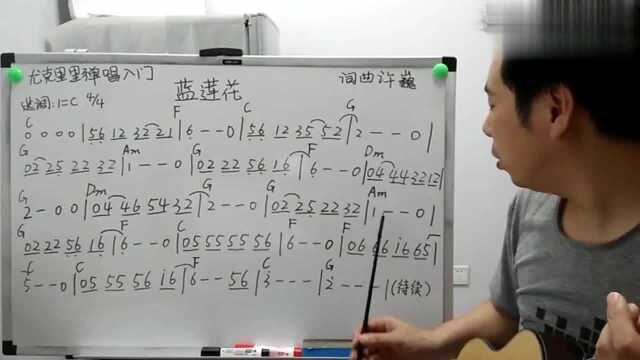 尤克里里弹唱入门
蓝莲花
词曲 许巍
选调:1=C 4/4
C F C G
0 0 0 0 | 56 12 32 21 | 6 - - 0 | 56 12 35 52 | 2 - - 0 |
G Am G F Dm
02 25 22 32 | 1 - - 0 | 02 22 56 16 | 6 - - 0 | 04 44 32 12 |
G Dm G G Am
2 - 0 0 | 04 46 54 32 | 2 - - 0 | 02 25 22 32 | 1 - - 0 |
G F C F F
02 22 56 16 | 6 - - 0 | 05 55 55 56 | 6 - - 0 | 06 66 i6 65 |
C F C G
5 - - 0 | 05 55 56 16 | 6 - - 56 | 3 - - - | 2 - - - | (待续)